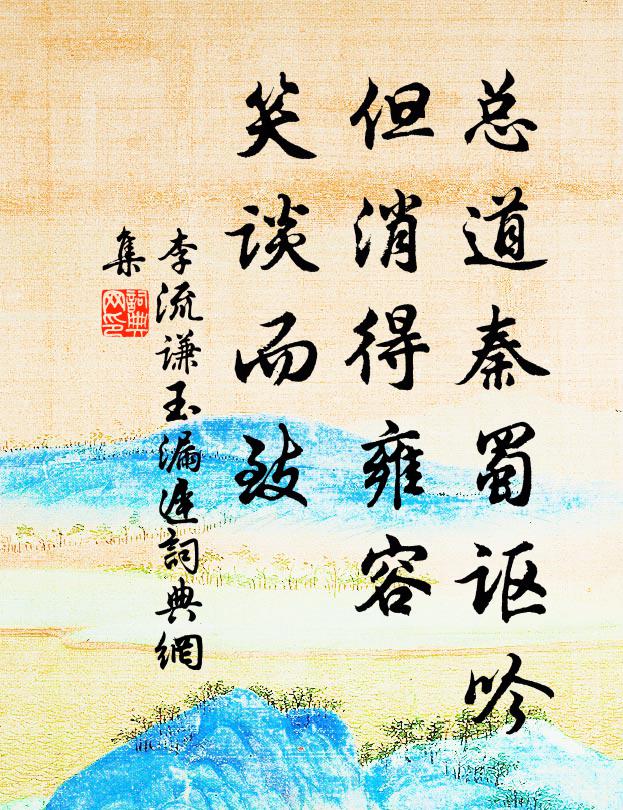 总道秦蜀讴吟
但消得雍容
笑谈而致
李流谦玉漏迟詞典網
集
詞典网印